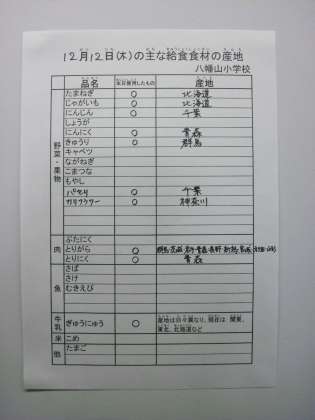 12月12日(木)の主な給食食材の産地
八幡山小学校
品名 本日使用したもの 産地
野菜・果物
たまねぎ ○ 北海道
じゃがいも ○ 北海道
にんじん ○ 千葉
しょうが
にんにく ○ 青森
きゅうり ○ 群馬
キャベツ
ながねぎ
こまつな
もやし
パセリ ○ 千葉
カリフラワー ○ 神奈川
肉
ぶたにく
とりがら ○
とりにく ○ 青森
魚
さば
さけ
むきえび
牛乳 ぎゅうにゅう ○ 産地は日々異なり、現在は 関東、
東北、北海道など
米 こめ
他 たまご